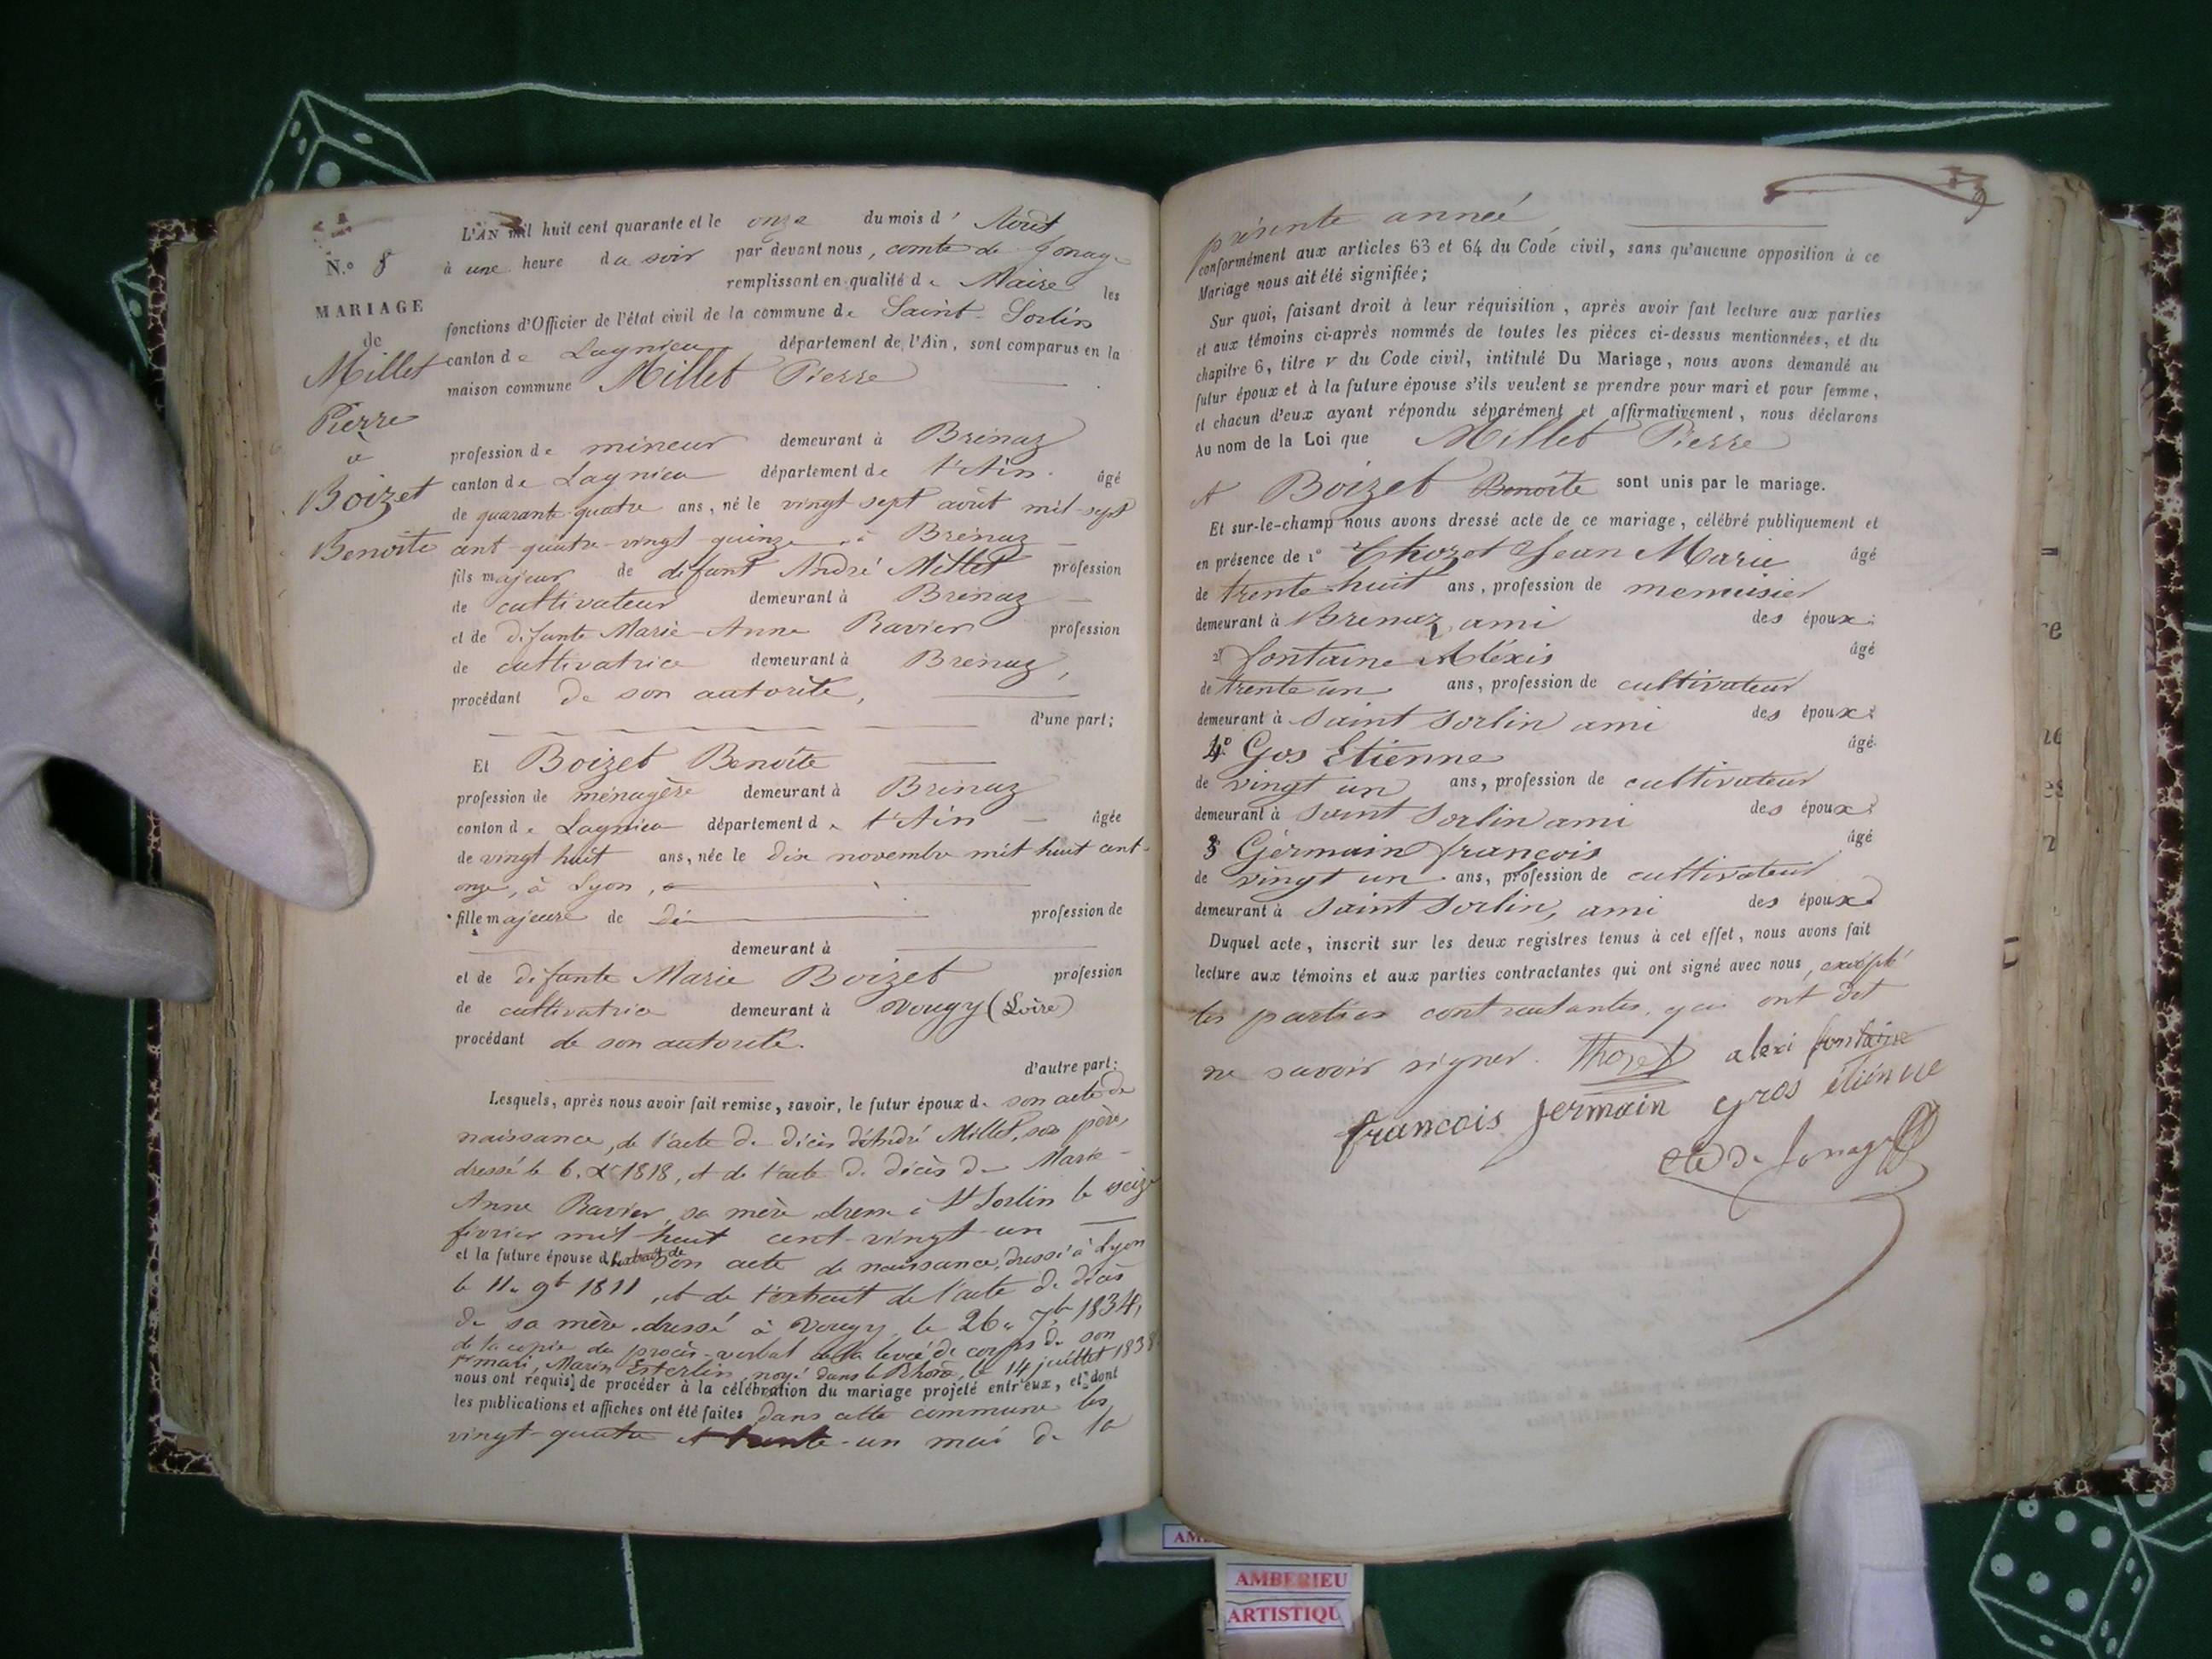 L'AN mil huit cent quarante et le onze du mois d' Août
N.o 8 à une heure du soir par devant nous, comte de Jonage
remplissant en qualité de Maire les
MARIAGE
fonctions d'Officier de l'état civil de la commune de Saint-Sorlin
de
canton de Lagnieu département de l'Ain, sont comparus en la
Millet
maison commune Millet Pierre
Pierre
et
Boizet
Benoîte
profession de mineur demeurant à Brénaz
canton de Lagnieu département de l'Ain. âgé
de quarante-quatre ans, né le vingt sept août mil-sept
cent-quatre-vingt-quinze, à Brénaz
fils majeur de défunt André Millet profession
de cultivateur demeurant à Brénaz
et de défunte Marie-Anne Ravier profession
de cultivatrice demeurant à Brénaz,
procédant de son autorité,
d'une part;
Et Boizet Benoîte
profession de ménagère demeurant à Brénaz
canton de Lagnieu département de l'Ain âgée
de vingt huit ans, née le dix novembre mil huit cent-
onze, à Lyon,
fille majeure de profession de
demeurant à
et de défunte Marie Boizet profession
de cultivatrice demeurant à Vougy (Loire)
procédant de son autorité.
d'autre part:
Lesquels, après nous avoir fait remise, savoir, le futur époux de son acte de
naissance, de l'acte de décès d'André Millet, son père,
dressé le 6. Xe 1818, et de l'acte de décès de Marie-
Anne Ravier, sa mère, dressé à St Sorlin le seize
février mil-huit cent-vingt-un
et la future épouse de l'extrait de son acte de naissance, dressé à Lyon
le 11. 9b 1811, et de l'extrait de l'acte de décès
de sa mère, dressé à Vougy, le 26. 7b 1834,
de la copie du procès-verbal de la levée de corps de son
1er mari, Marin Esterlin, noyé dans le Rhône, le 14 juillet 1838
nous ont requis de procéder à la célébration du mariage projeté entr'eux, et dont
les publications et affiches ont été faites dans cette commune les
vingt-quatre et trente-un mai de la
présente année
conformément aux articles 63 et 64 du Code civil, sans qu'aucune opposition à ce
Mariage nous ait été signifiée;
Sur quoi, faisant droit à leur réquisition, après avoir fait lecture aux parties
et aux témoins ci-après nommés de toutes les pièces ci-dessus mentionnées, et du
chapitre 6, titre v du Code civil, intitulé Du Mariage, nous avons demandé au
futur époux et à la future épouse s'ils veulent se prendre pour mari et pour femme,
et chacun d'eux ayant répondu séparément et affirmativement, nous déclarons
Au nom de la Loi que Millet Pierre
et Boizet Benoîte sont unis par le mariage.
Et sur-le-champ nous avons dressé acte de ce mariage, célébré publiquement et
en présence de 1o Thozet Jean Marie âgé
de trente huit ans, profession de menuisier
demeurant à Brenaz, ami des époux;
2o fontaine Aléxis âgé
de trente un ans, profession de cultivateur
demeurant à Saint Sorlin ami des époux;
4o Gros Etienne âgé
de vingt un ans, profession de cultivateur
demeurant à Saint Sorlin ami des époux;
3 Germain françois âgé
de vingt un ans, profession de cultivateur
demeurant à Saint Sorlin, ami des époux.
Duquel acte, inscrit sur les deux registres tenus à cet effet, nous avons fait
lecture aux témoins et aux parties contractantes qui ont signé avec nous, excepté
les parties contractantes, qui ont dit
ne savoir signer. Thozet alexi fontaine
francois jermain gros étiénne
cte de Jonage
AMBERIEU
ARTISTIQU